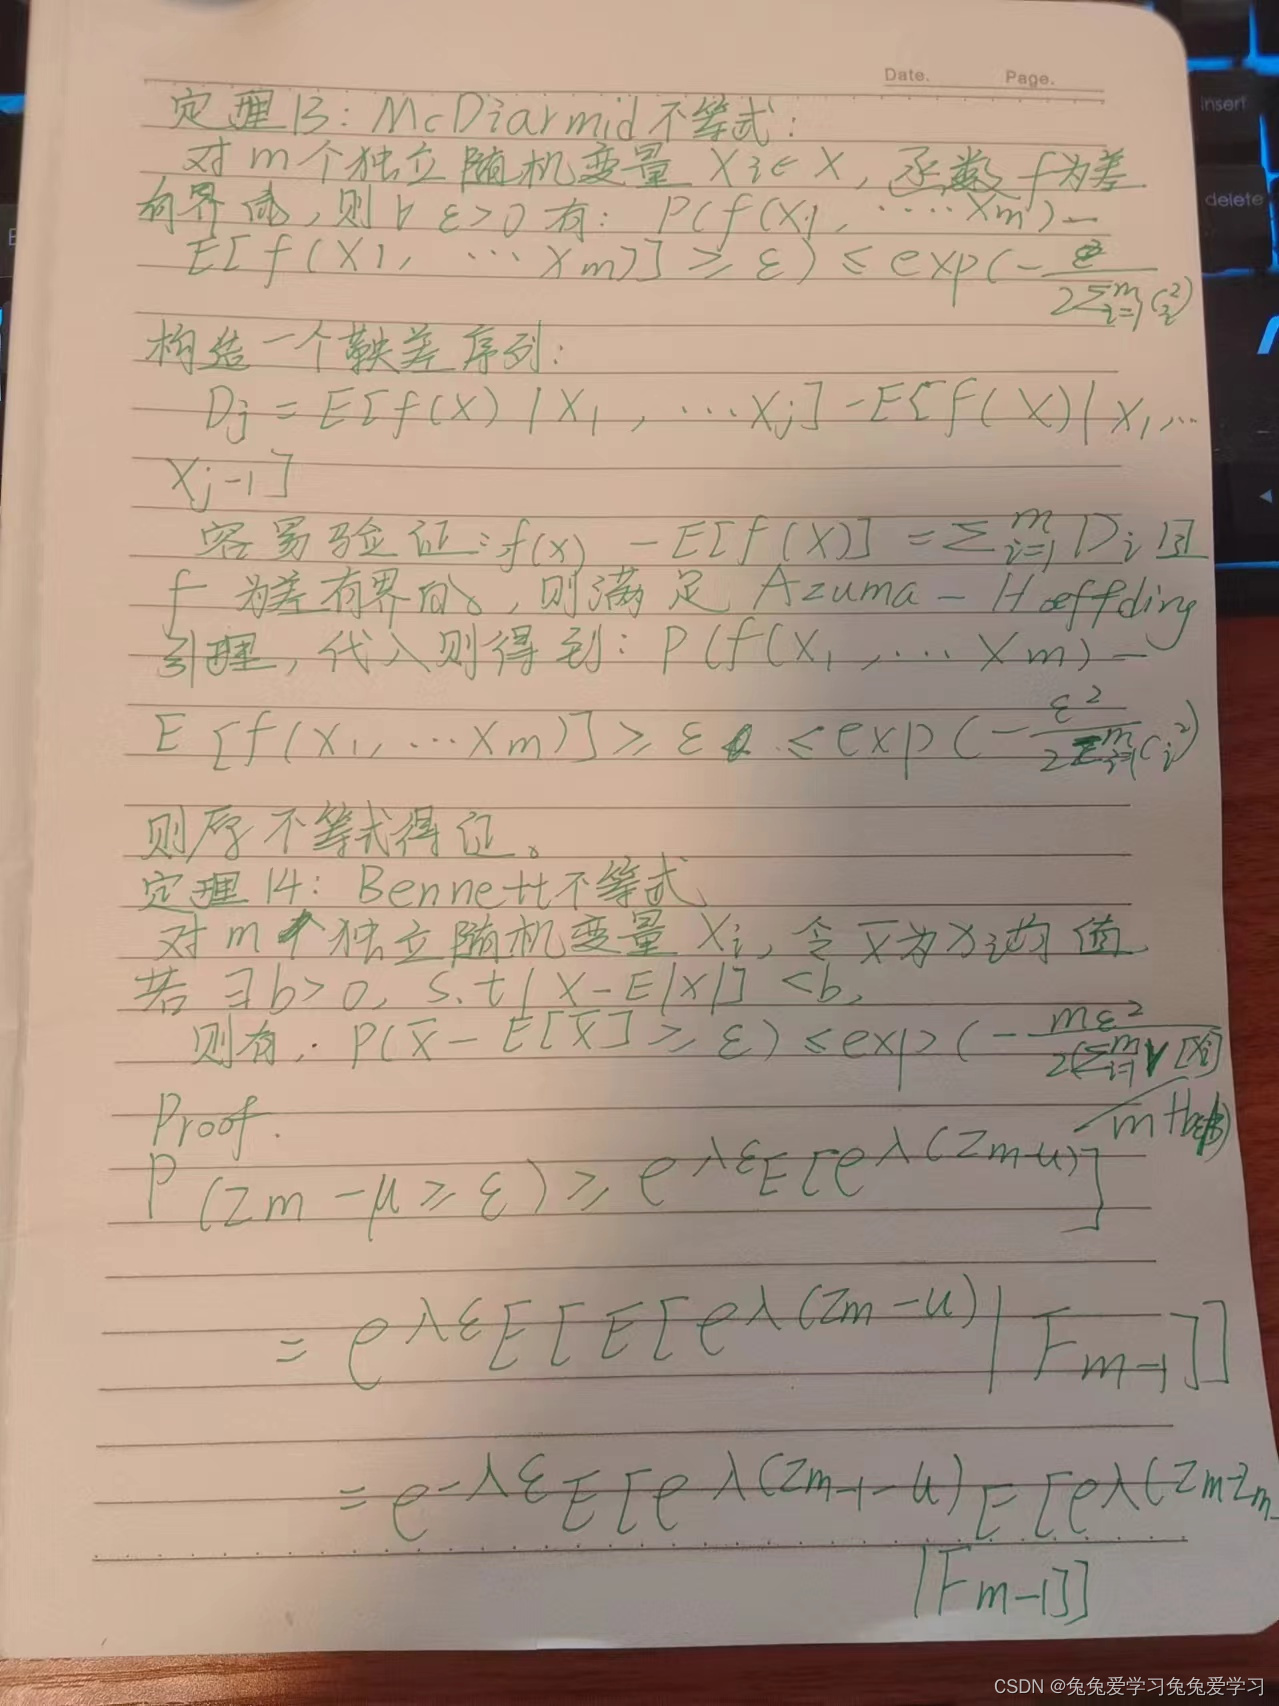 Date. Page.
insert
delete
定理13：McDiarmid不等式：
对m个独立随机变量 Xi∈X，函数f为差
有界的，则∀ε>0有：P(f(X1,····Xm)—
E[f(X1,···Xm)]≥ε)≤exp(-ε²/2Σ_{i=1}^m c_i²)
构造一个鞅差序列：
Dj=E[f(X)|X1,···Xj]-E[f(X)|X1,···
Xj-1]
容易验证：f(x)-E[f(X)]=Σ_{i=1}^m Di 且
f 为差有界的，则满足Azuma-Hoeffding
引理，代入则得到：P(f(X1,····Xm)—
E[f(X1,···Xm)]≥ε ≤exp(-ε²/2Σ_{i=1}^m c_i²)
则原不等式得证。
定理14：Bennett不等式
对m个独立随机变量Xi，令x̄为xi均值
若∃b>0, s.t|X-E|x|]<b,
则有：P(x̄-E[x̄]≥ε)≤exp(-mε²/2(Σ_{i=1}^m V[Xi]/m+bε/3)
Proof.
P(Zm-μ≥ε)≥e^{λε}E[e^{λ(Zm-u)}]
=e^{λε}E[E[e^{λ(Zm-u)}|Fm-1]]
=e^{-λε}E[e^{λ(Zm-1-u)}E[e^{λ(Zm-Zm-
|Fm-1]]
CSDN @兔兔爱学习兔兔爱学习